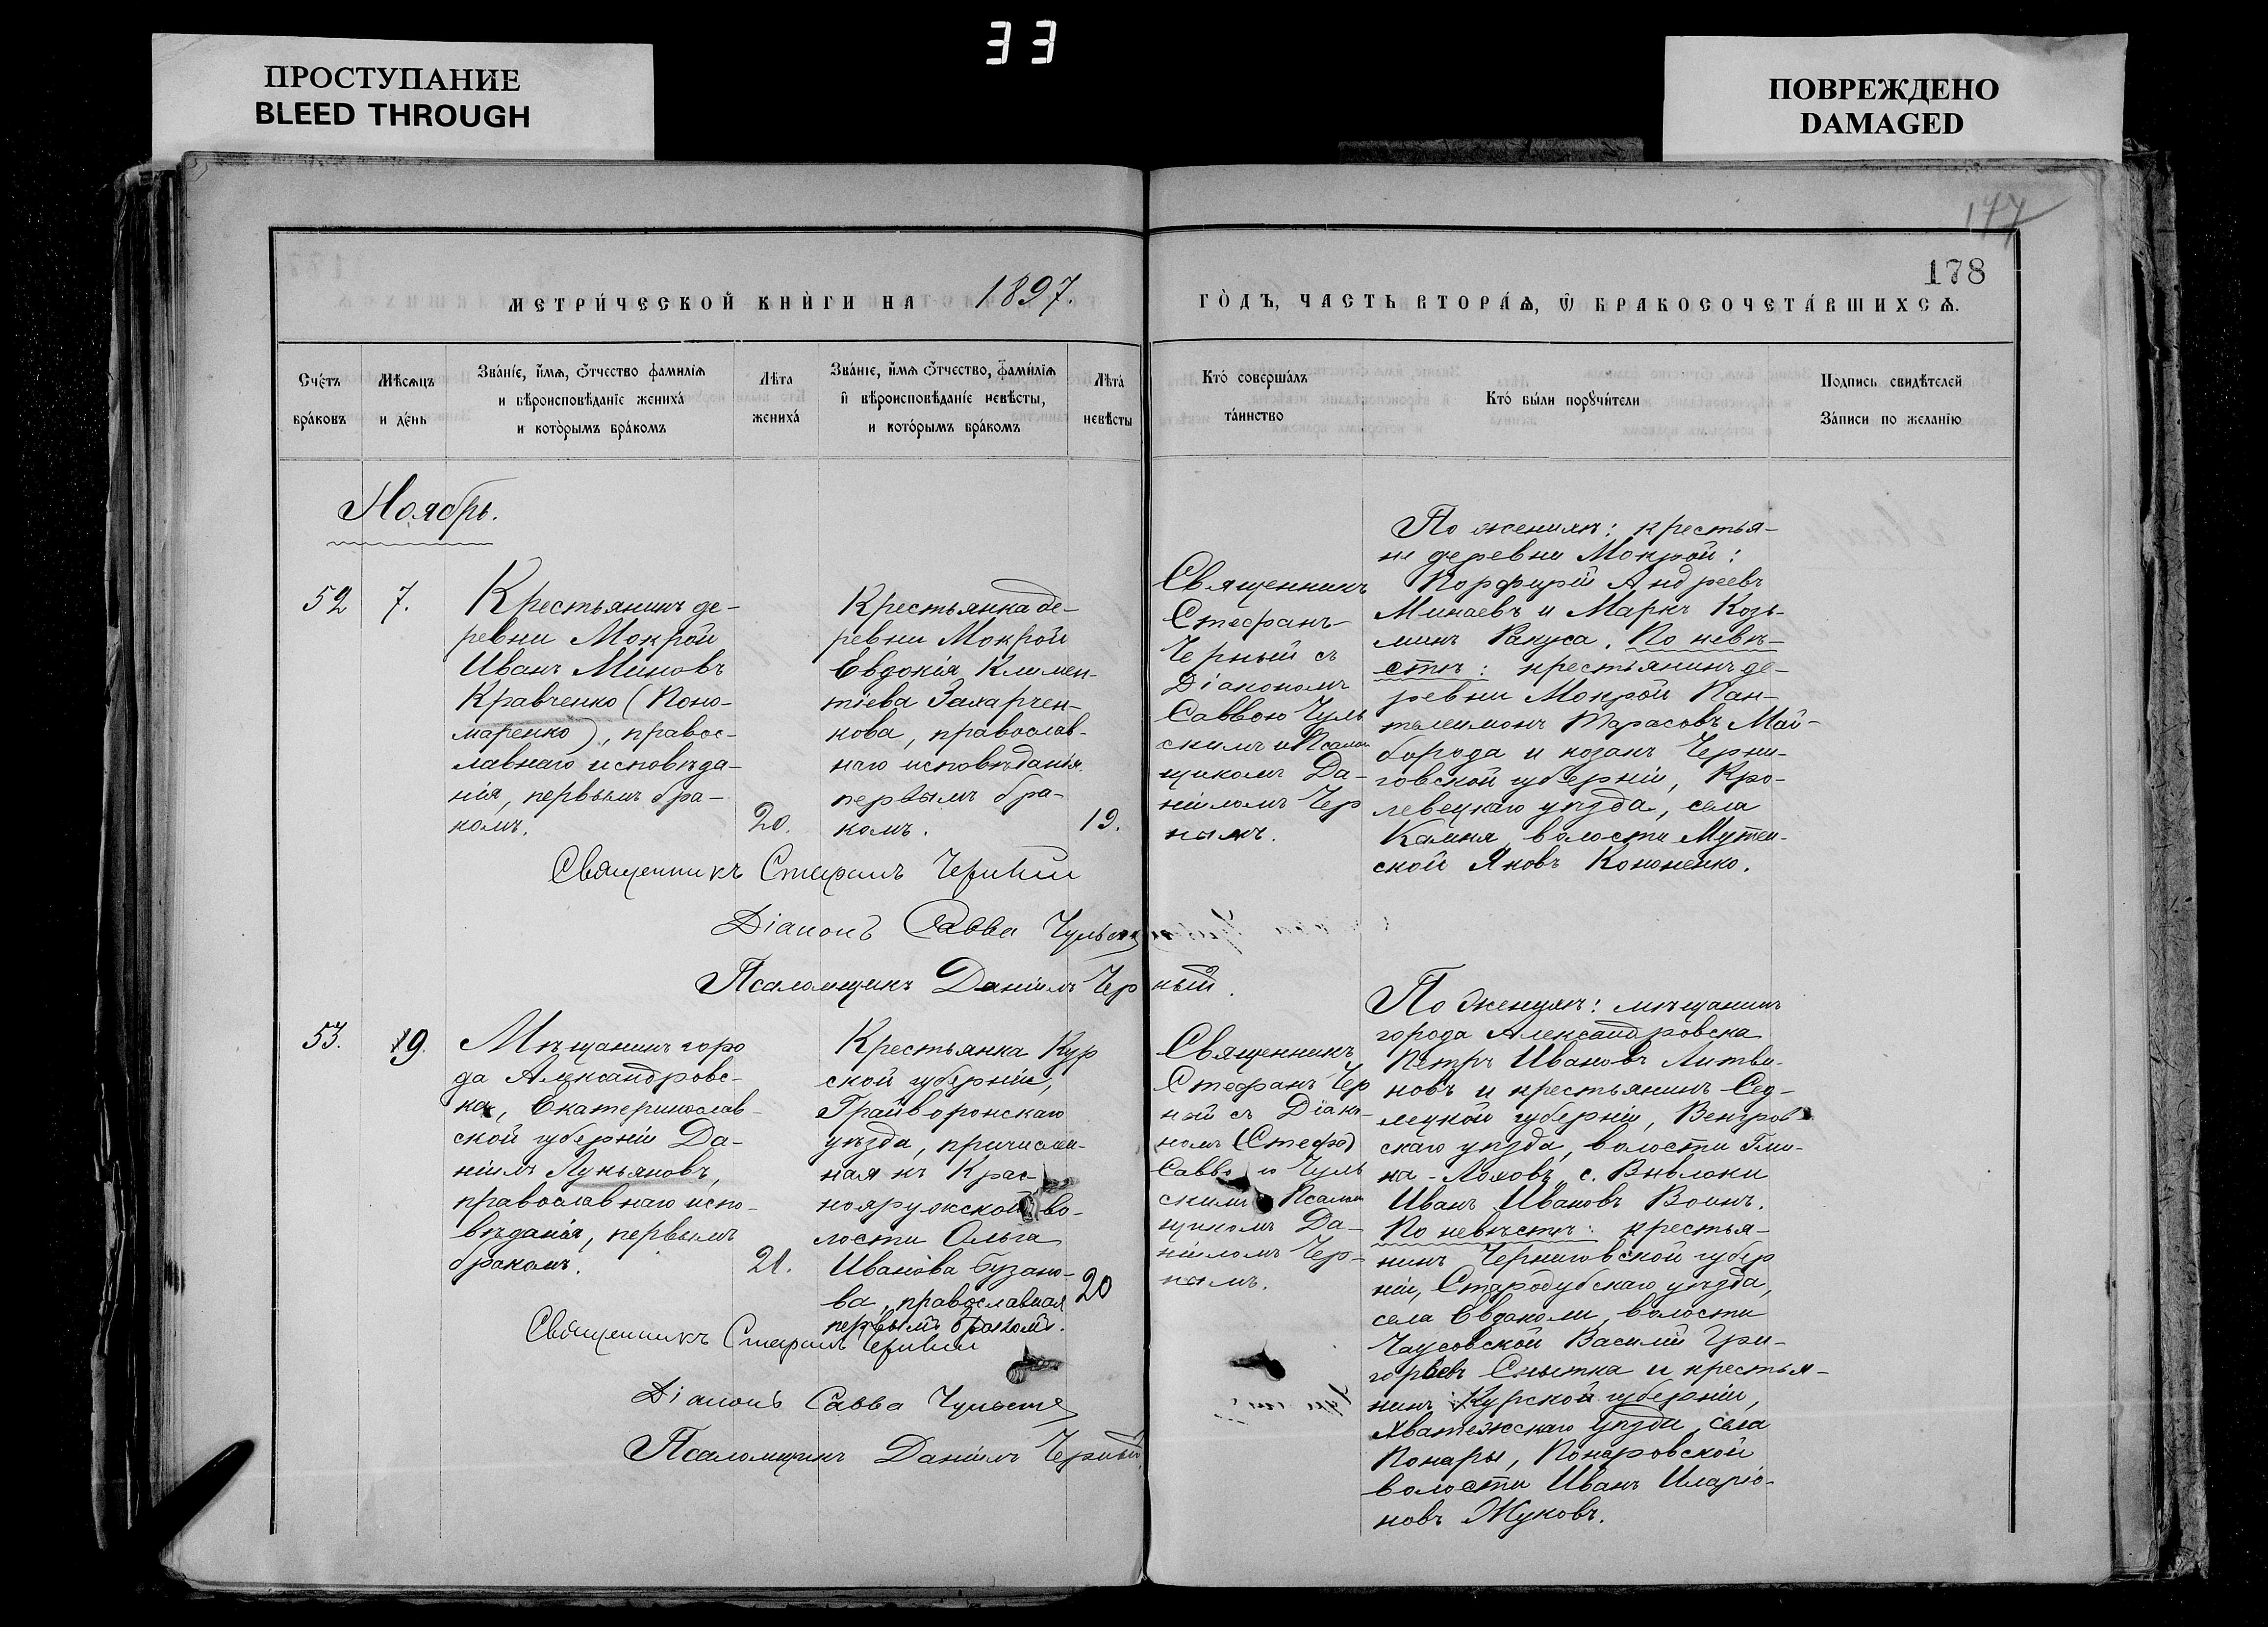 33
ПРОСТУПАНИЕ
BLEED THROUGH
ПОВРЕЖДЕНО
DAMAGED
177
178
МЕТРИ́ЧЕСКОЙ КНИ́ГИ НА 1897.
ГО́ДЪ, ЧАСТЬ ВТОРА́Ѧ, Ѽ БРАКОСОЧЕТА́ВШИХСѦ.
Сче́тъ
бра́ковъ
Мѣсѧцъ
и де́нь
Зва́нїе, и҆́мѧ, ѻ҆́тчество фамилїѧ
и вѣроисповѣданїе жениха̀
и кото́рымъ бра́комъ
Лѣ́та
жениха̀
Зва́нїе, и҆́мѧ ѻ҆́тчество, фами́лїѧ
и҆ вѣроисповѣданїе невѣсты,
и кото́рымъ бра́комъ
Лѣта́
невѣсты
Кто̀ соверша́лъ
та́инство
Кто̀ бы́ли порꙋчи́тели
Подпись свидѣтелей
За́писи по жела́нїю
Ноябрь.
52
7.
Крестьянинъ де-
ревни Мокрой
Иванъ Миновъ
Кравченко (Поно-
маренко), правос-
лавнаго исповѣда-
нія, первымъ бра-
комъ.
20.
Крестьянка де-
ревни Мокрой
Евдокія Климен-
тіева Захарчен-
кова, православ-
наго исповѣданія
первымъ бра-
комъ.
19.
Священникъ
Стефанъ
Черный съ
Діакономъ
Саввою Чуль
скимъ и Псалом
щикомъ Да-
ніиломъ Чер
нымъ.
По женихѣ: крестья-
не деревни Мокрой:
Порфирій Андреевъ
Минаевъ и Маркъ Козь-
минъ Ракуса. По невѣ-
стѣ: крестьянинъ де-
ревни Мокрой Пан-
телеимонъ Тарасовъ Май-
борода и козакъ Черни-
говской губерніи, Кро-
левецкаго уѣзда, села
Камня, волости Мутен-
ской Яковъ Кононенко.
Священникъ Стефанъ Черный
Діаконъ Савва Чульскій
Псаломщикъ Даніилъ Черный.
53.
19.
Мѣщанинъ горо
да Александровс-
ка, Екатеринослав-
ской губерніи Да-
ніилъ Лукьяновъ,
православнаго испо-
вѣданія, первымъ
бракомъ.
21.
Крестьянка Кур
ской губерніи,
Грайворонскаго
уѣзда, причислен-
ная къ Крас-
нояружской во-
лости Ольга
Иванова Бузано-
ва, православная
первымъ бракомъ.
20
Священникъ
Стефанъ Чер
ный съ Діако-
номъ (Стефа)
Саввою Чуль
скимъ Псалом
щикомъ Да-
ніиломъ Чер-
нымъ.
По женихѣ: мѣщанинъ
города Александровска
Петръ Ивановъ Литви-
новъ и крестьянинъ Сед-
лецкой губерніи, Венгров
скаго уѣзда, волости
Иванъ Ивановъ Воинъ.
По невѣстѣ: крестья-
нинъ Черниговской губер
ніи, Стародубскаго уѣзда,
села Евдоколи, волости
Чаусовской Василій Гри-
горьевъ Снытка и крестья-
нинъ Курской губерніи,
уѣзда села
Понары, Понаровской
волости Иванъ Иларіо-
новъ Жуковъ.
Священникъ Стефанъ Черный
Діаконъ Савва Чульскій
Псаломщикъ Даніилъ Черный.